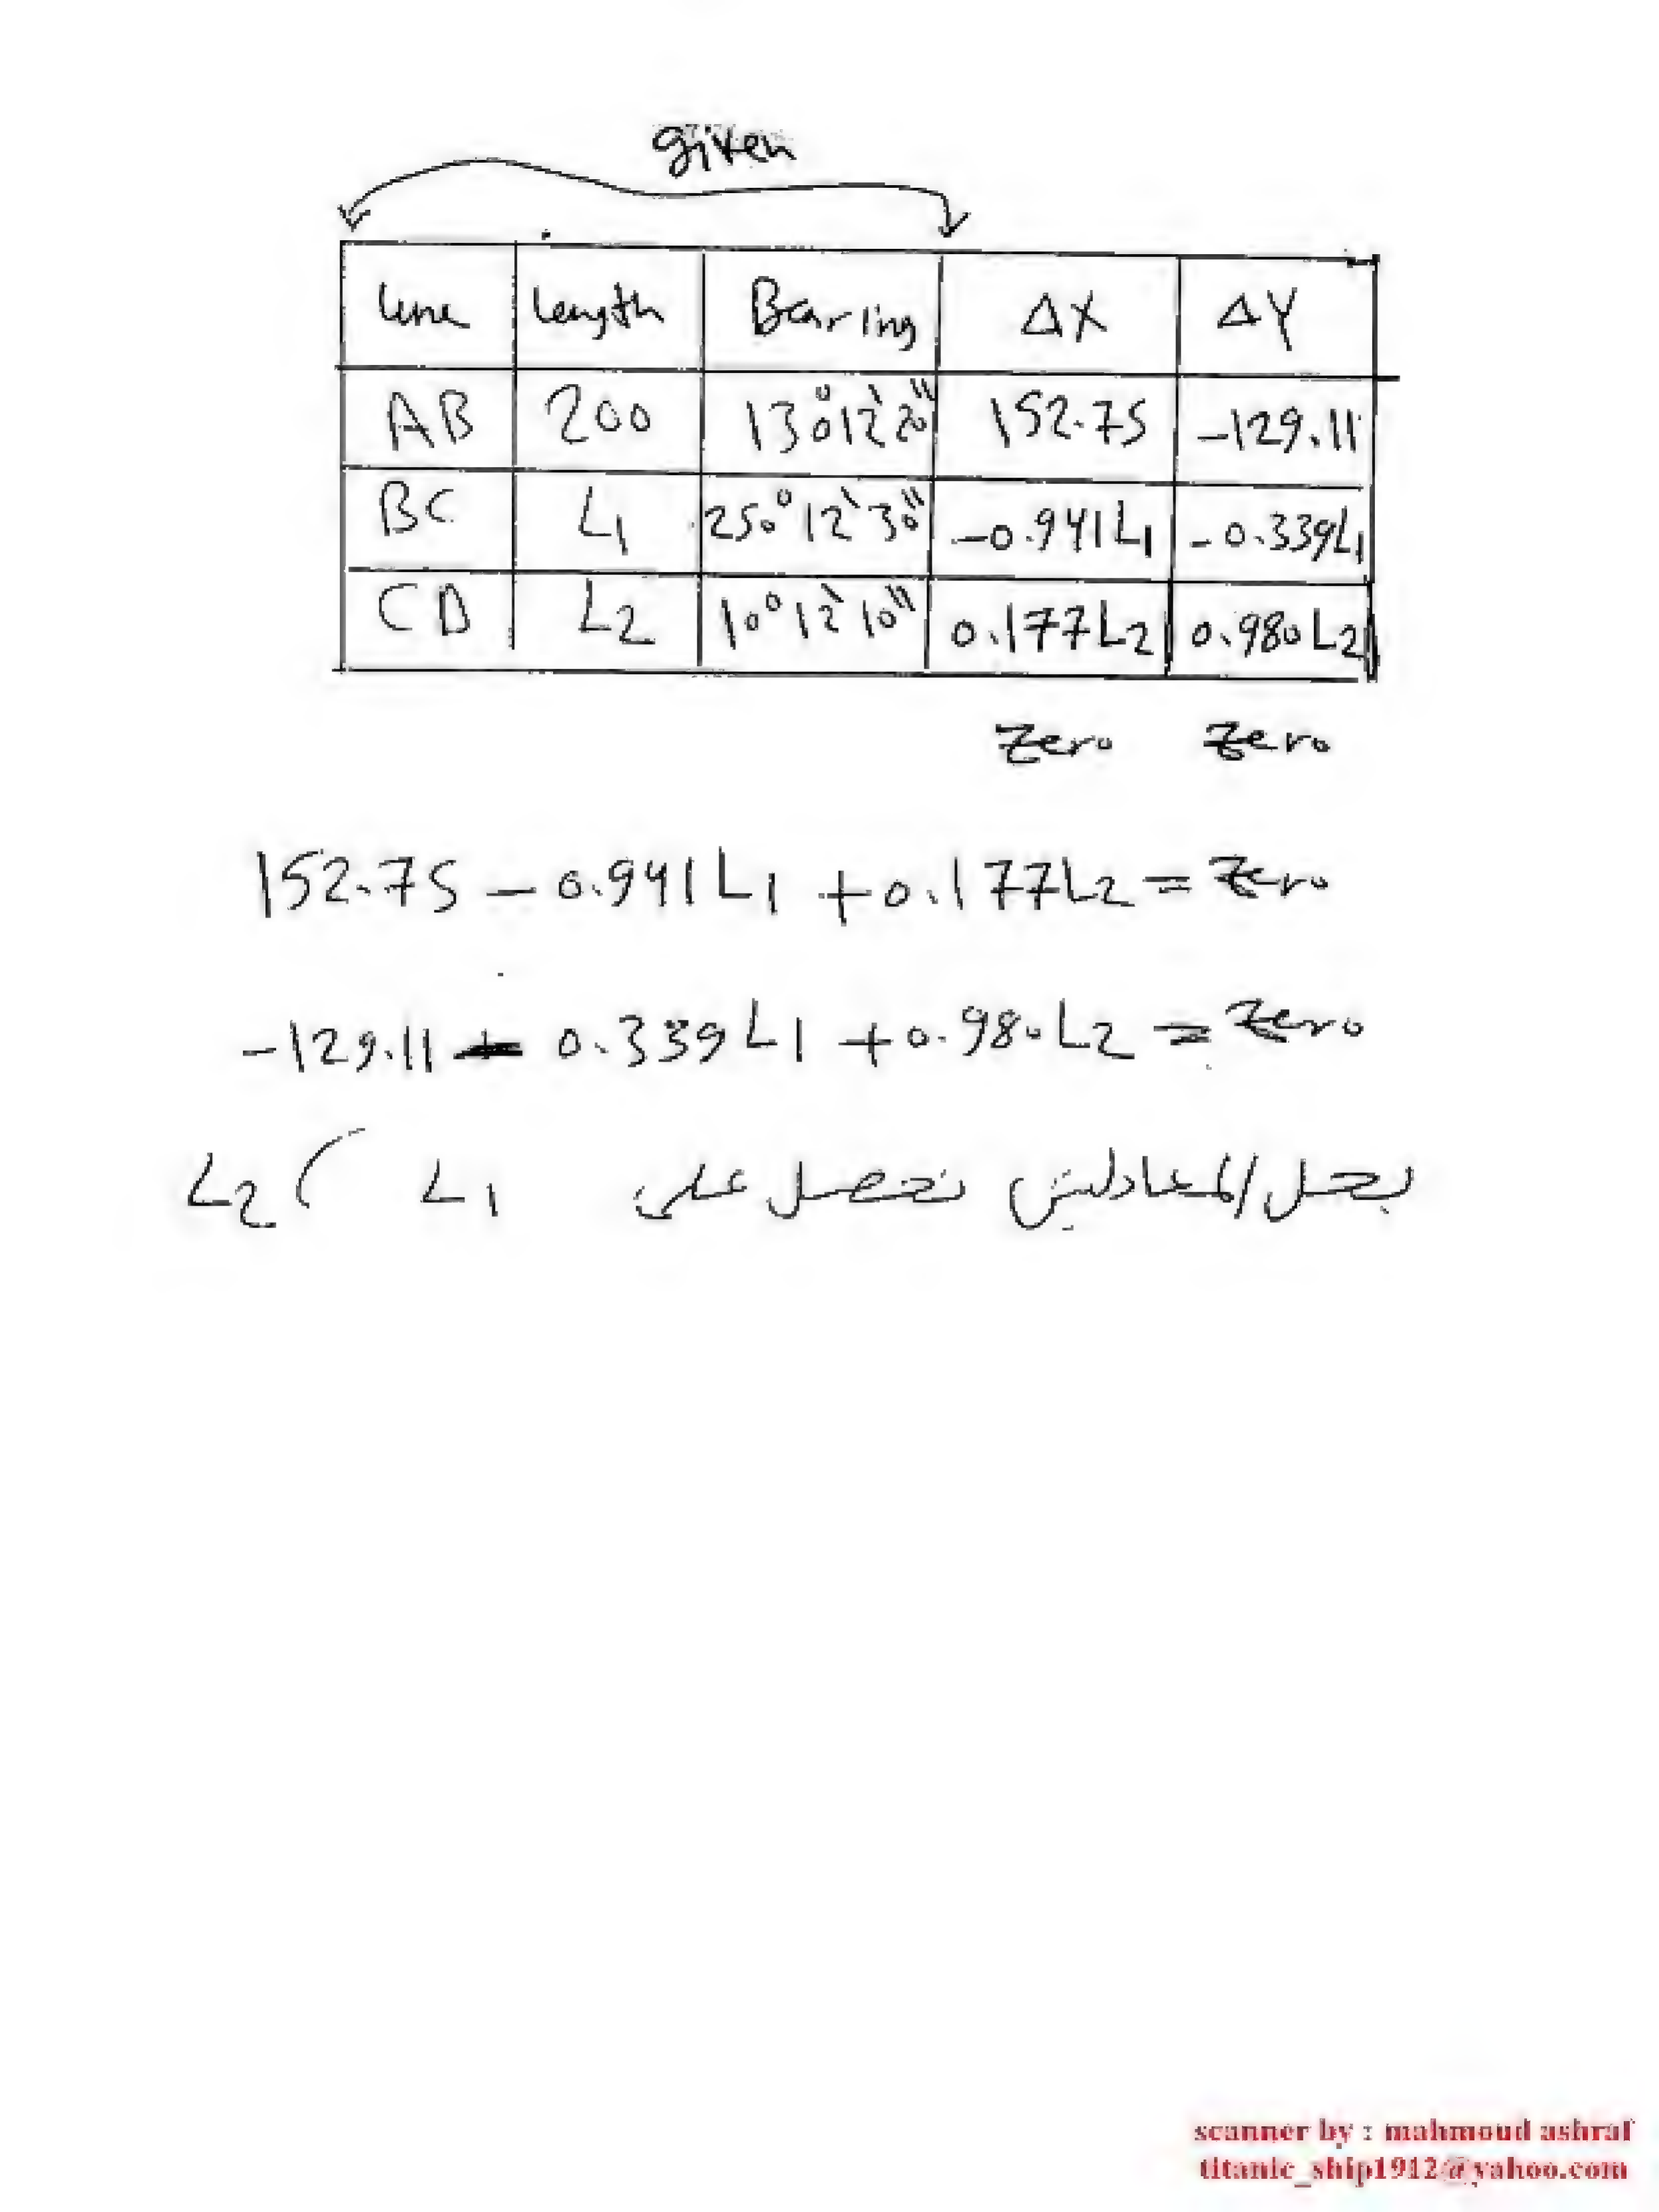 given
Line Length Bearing ΔX ΔY
AB 200 130°12'20" 152.75 -129.11
BC L1 250°12'30" -0.941L1 -0.339L1
CD L2 10°12'10" 0.177L2 0.980L2
Zero Zero
152.75 - 0.941L1 + 0.177L2 = Zero
-129.11 - 0.339L1 + 0.980L2 = Zero
بحل المعادلتين نحصل على L1 ، L2
scanner by : mahmoud ashraf
titanic_ship1912@yahoo.com